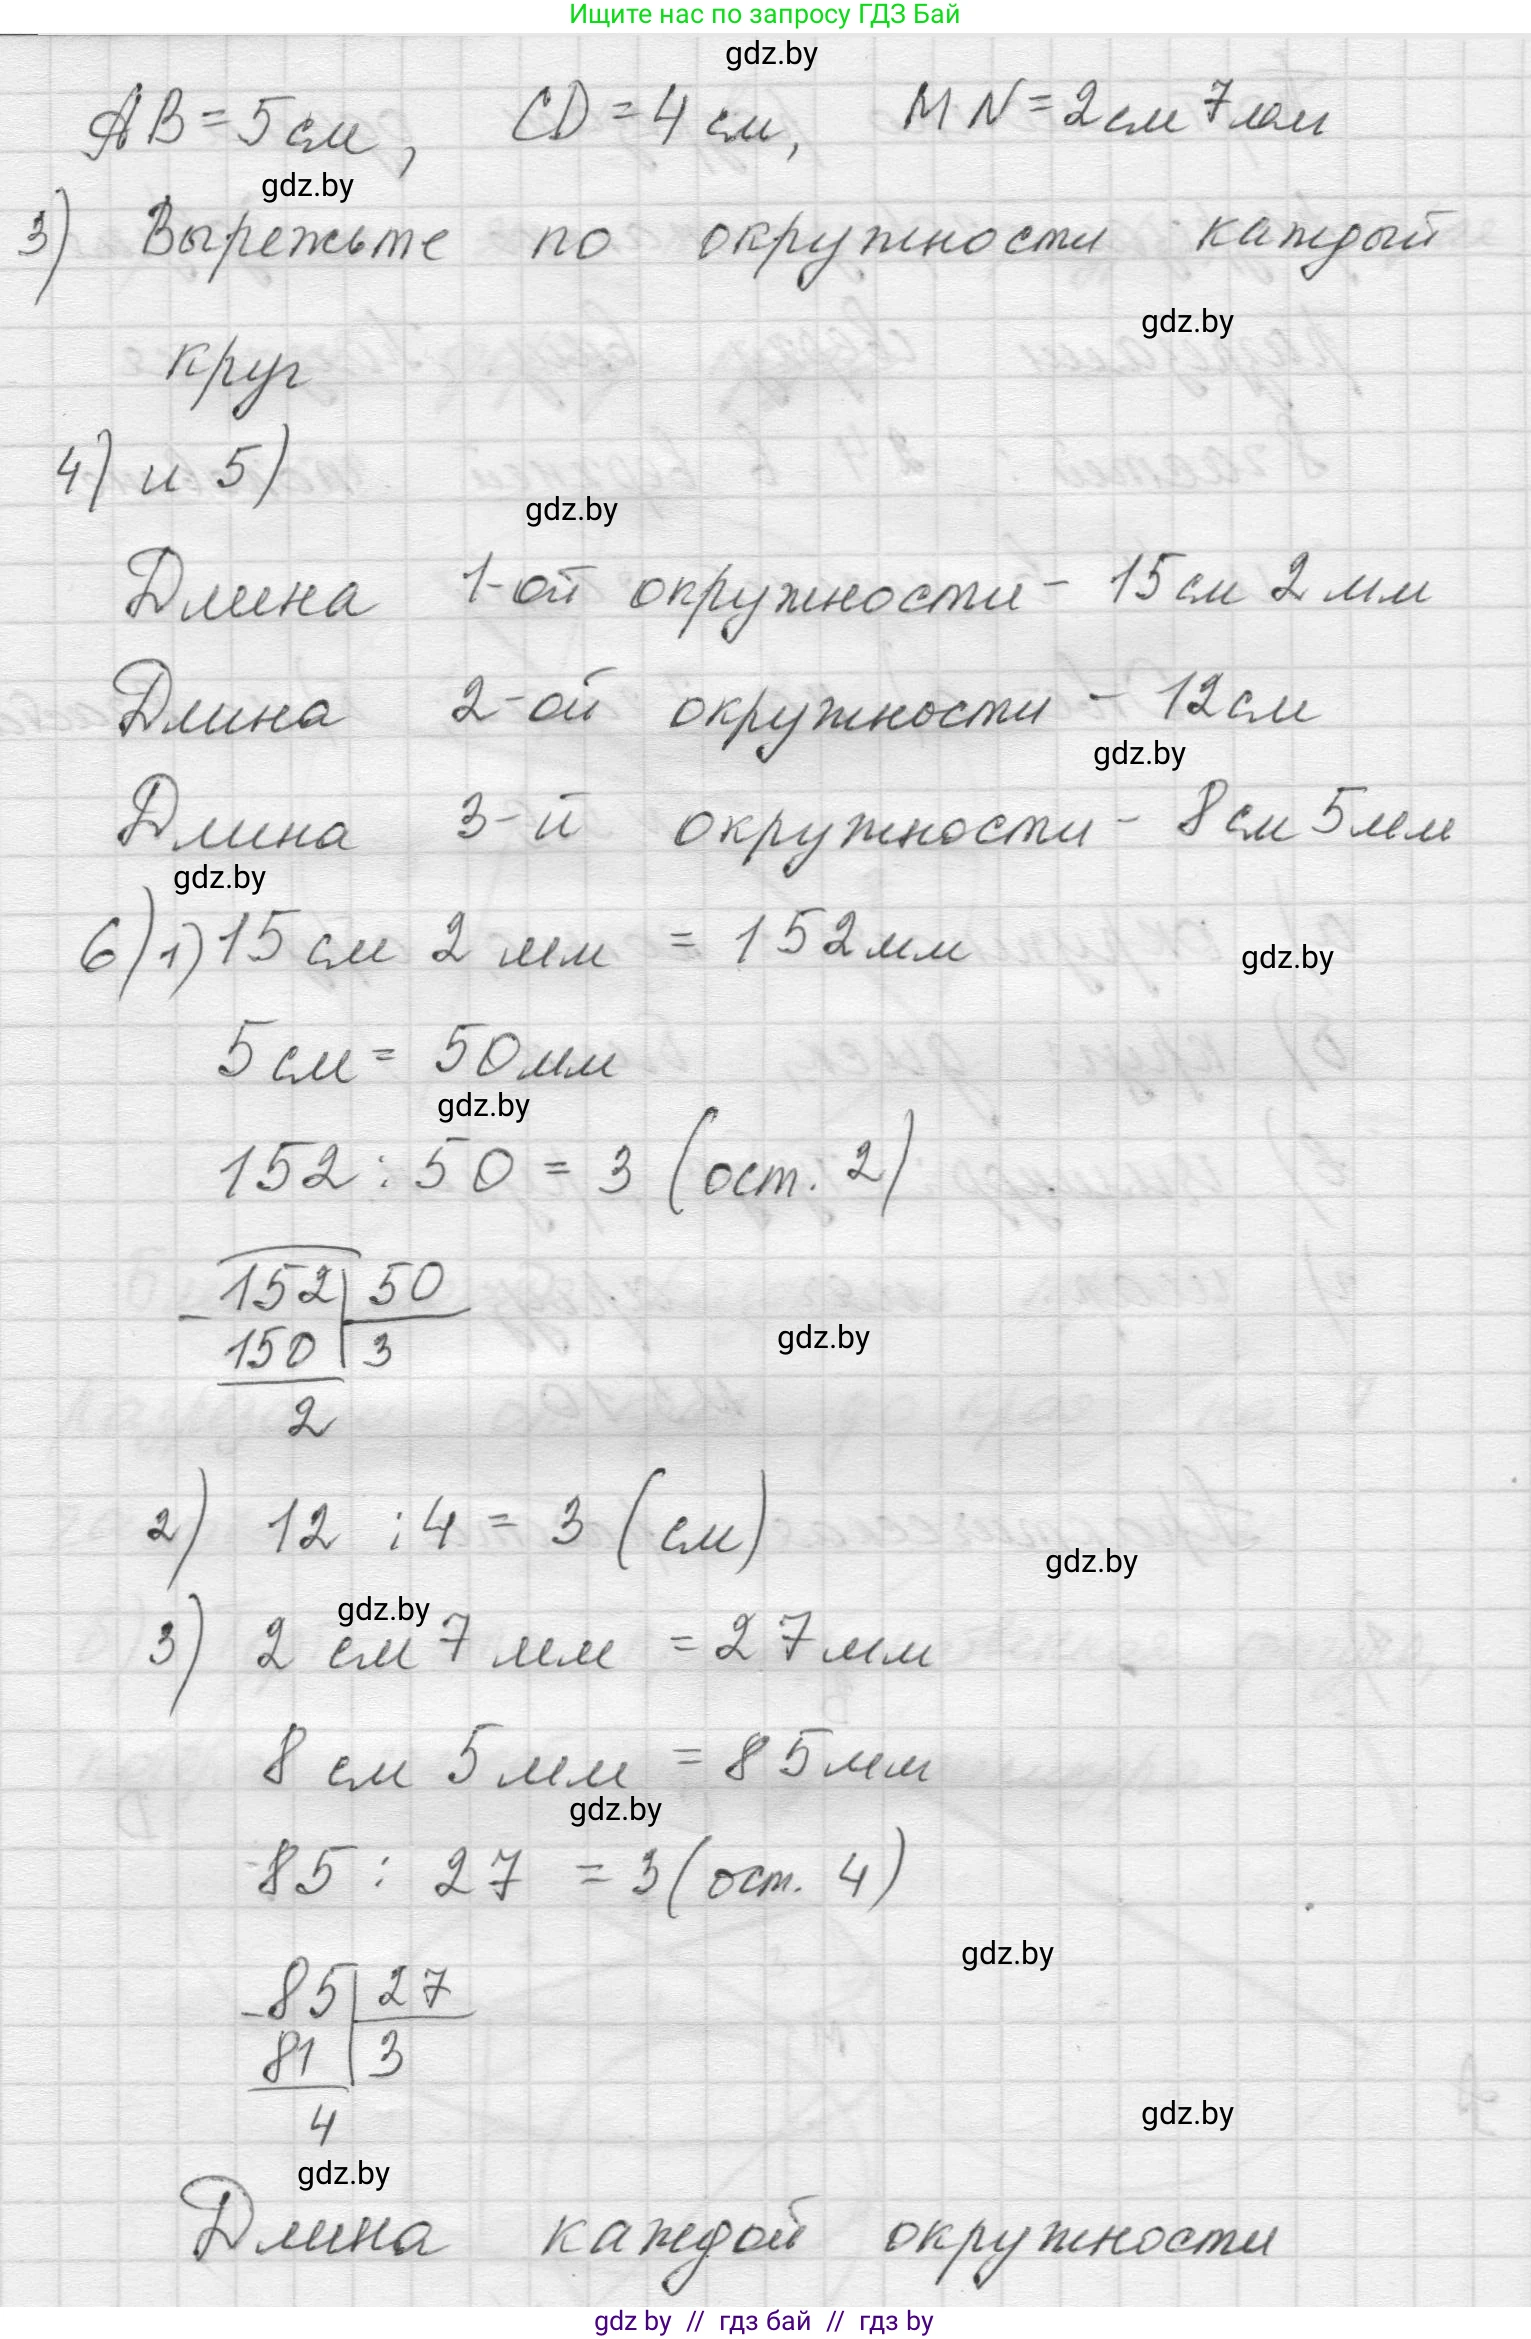 Ищите нас по запросу ГДЗ Бай
gdz.by
AB = 5 см, CD = 4 см, MN = 2 см 7 мм
gdz.by
3) Вырежьте по окружности каждый
gdz.by
круг
4) и 5)
gdz.by
Длина 1-ой окружности - 15 см 2 мм
Длина 2-ой окружности - 12 см
gdz.by
Длина 3-й окружности - 8 см 5 мм
gdz.by
6) 1) 15 см 2 мм = 152 мм
gdz.by
5 см = 50 мм
gdz.by
152 : 50 = 3 (ост. 2)
152 50
- 150 3
gdz.by
2
2) 12 : 4 = 3 (см)
gdz.by
gdz.by
3) 2 см 7 мм = 27 мм
8 см 5 мм = 85 мм
gdz.by
85 : 27 = 3 (ост. 4)
gdz.by
- 85 27
81 3
4
gdz.by
gdz.by
Длина каждой окружности
gdz by // гдз бай // гдз by